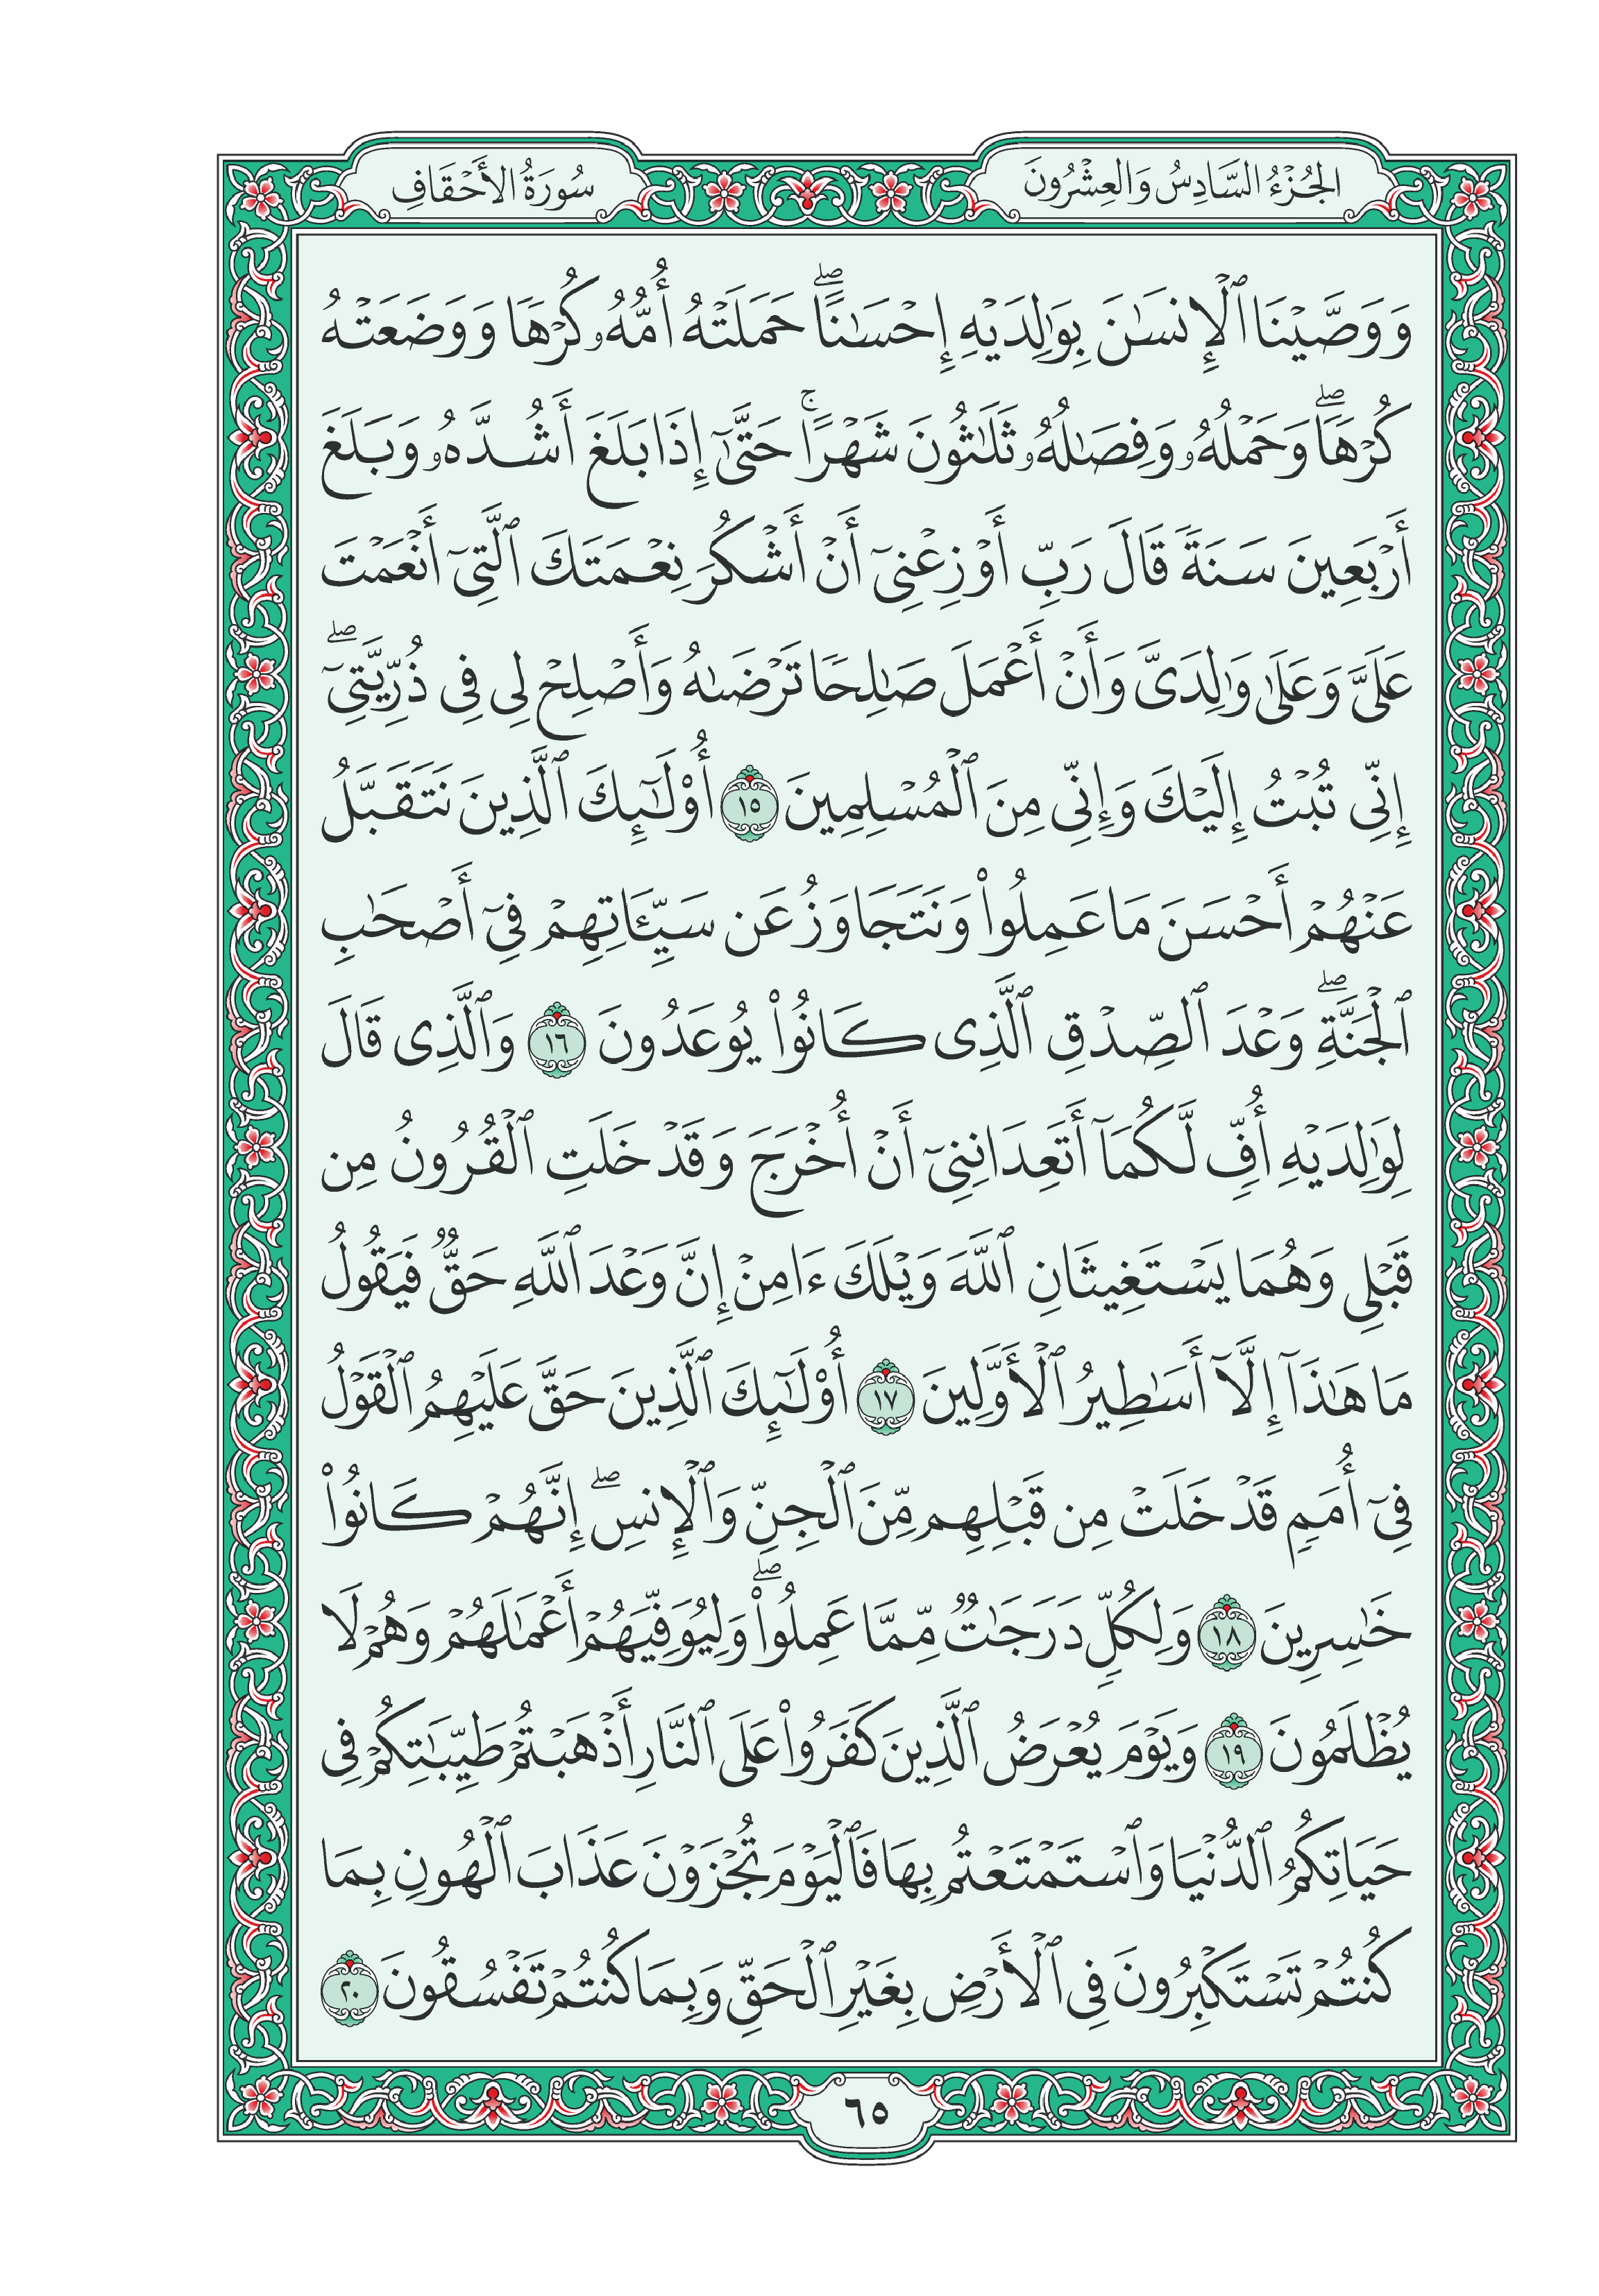 الجُزْءُ السَّادِسُ وَالعِشْرُونَ
سُورَةُ الأَحْقَافِ
وَوَصَّيْنَا ٱلْإِنسَٰنَ بِوَٰلِدَيْهِ إِحْسَٰنًاۖ حَمَلَتْهُ أُمُّهُۥ كُرْهًا وَوَضَعَتْهُ
كُرْهًاۖ وَحَمْلُهُۥ وَفِصَٰلُهُۥ ثَلَٰثُونَ شَهْرًاۚ حَتَّىٰٓ إِذَا بَلَغَ أَشُدَّهُۥ وَبَلَغَ
أَرْبَعِينَ سَنَةً قَالَ رَبِّ أَوْزِعْنِىٓ أَنْ أَشْكُرَ نِعْمَتَكَ ٱلَّتِىٓ أَنْعَمْتَ
عَلَىَّ وَعَلَىٰ وَٰلِدَىَّ وَأَنْ أَعْمَلَ صَٰلِحًا تَرْضَىٰهُ وَأَصْلِحْ لِى فِى ذُرِّيَّتِىٓۖ
إِنِّى تُبْتُ إِلَيْكَ وَإِنِّى مِنَ ٱلْمُسْلِمِينَ ١٥ أُو۟لَٰٓئِكَ ٱلَّذِينَ نَتَقَبَّلُ
عَنْهُمْ أَحْسَنَ مَا عَمِلُوا۟ وَنَتَجَاوَزُ عَن سَيِّـَٔاتِهِمْ فِىٓ أَصْحَٰبِ
ٱلْجَنَّةِۖ وَعْدَ ٱلصِّدْقِ ٱلَّذِى كَانُوا۟ يُوعَدُونَ ١٦ وَٱلَّذِى قَالَ
لِوَٰلِدَيْهِ أُفٍّ لَّكُمَآ أَتَعِدَانِنِىٓ أَنْ أُخْرَجَ وَقَدْ خَلَتِ ٱلْقُرُونُ مِن
قَبْلِى وَهُمَا يَسْتَغِيثَانِ ٱللَّهَ وَيْلَكَ ءَامِنْ إِنَّ وَعْدَ ٱللَّهِ حَقٌّ فَيَقُولُ
مَا هَٰذَآ إِلَّآ أَسَٰطِيرُ ٱلْأَوَّلِينَ ١٧ أُو۟لَٰٓئِكَ ٱلَّذِينَ حَقَّ عَلَيْهِمُ ٱلْقَوْلُ
فِىٓ أُمَمٍ قَدْ خَلَتْ مِن قَبْلِهِم مِّنَ ٱلْجِنِّ وَٱلْإِنسِۖ إِنَّهُمْ كَانُوا۟
خَٰسِرِينَ ١٨ وَلِكُلٍّ دَرَجَٰتٌ مِّمَّا عَمِلُوا۟ۖ وَلِيُوَفِّيَهُمْ أَعْمَٰلَهُمْ وَهُمْ لَا
يُظْلَمُونَ ١٩ وَيَوْمَ يُعْرَضُ ٱلَّذِينَ كَفَرُوا۟ عَلَى ٱلنَّارِ أَذْهَبْتُمْ طَيِّبَٰتِكُمْ فِى
حَيَاتِكُمُ ٱلدُّنْيَا وَٱسْتَمْتَعْتُم بِهَا فَٱلْيَوْمَ تُجْزَوْنَ عَذَابَ ٱلْهُونِ بِمَا
كُنتُمْ تَسْتَكْبِرُونَ فِى ٱلْأَرْضِ بِغَيْرِ ٱلْحَقِّ وَبِمَا كُنتُمْ تَفْسُقُونَ ٢٠
٦٥